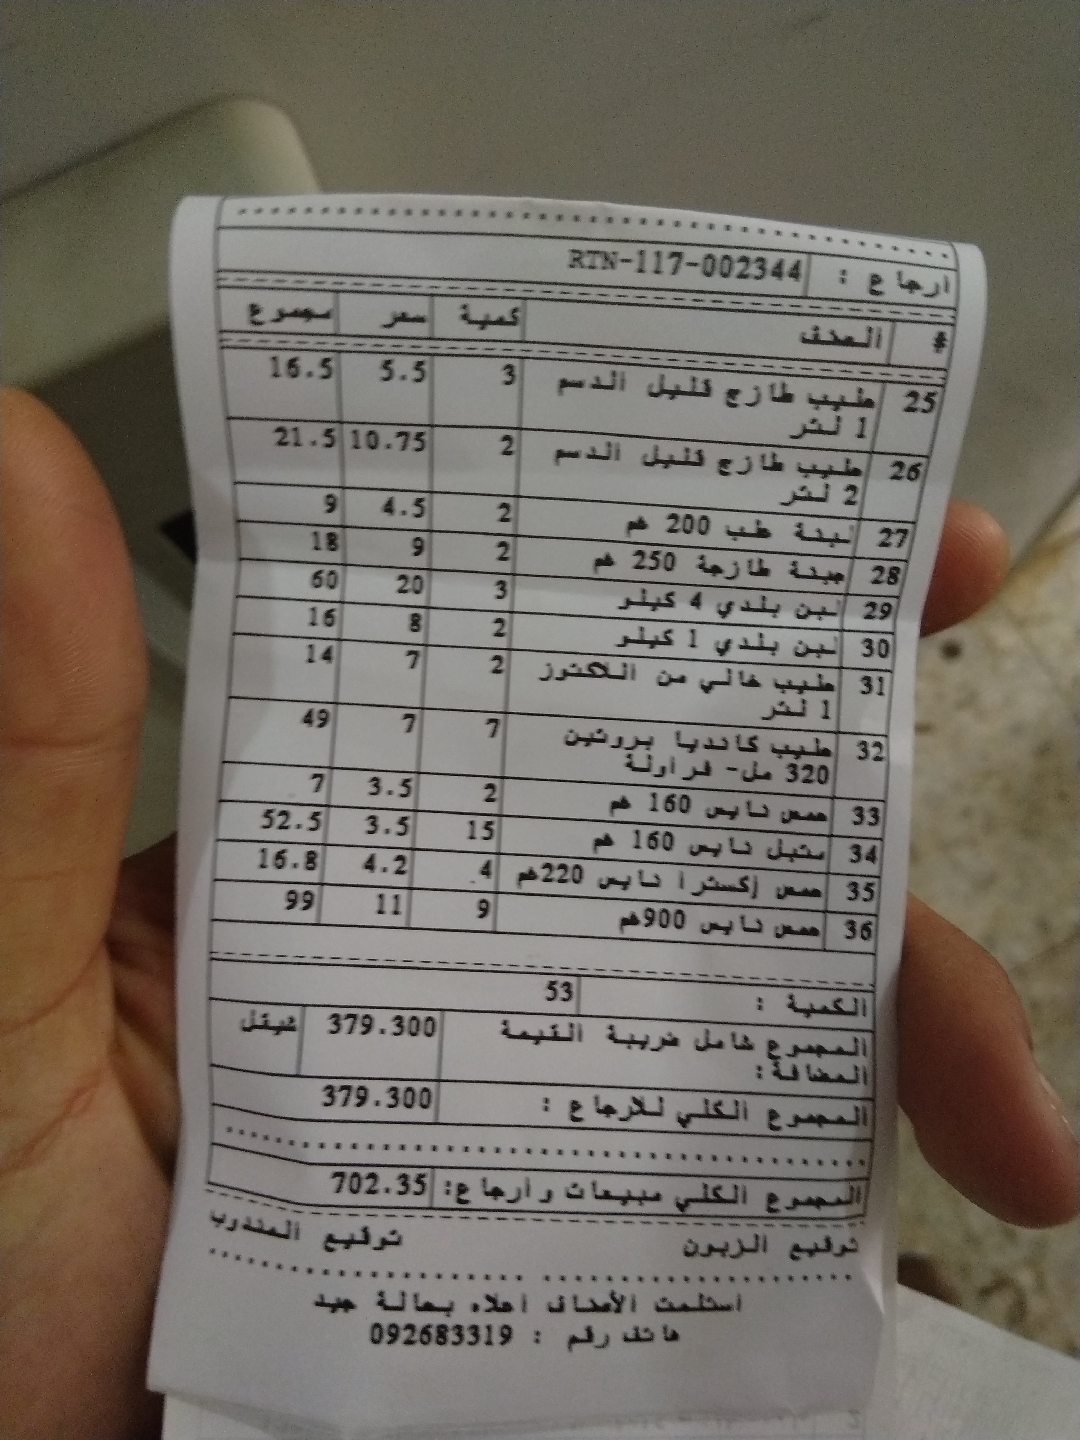 ارجاع : RTN-117-002344
# الصنف كمية سعر مجموع
25 حليب طازج قليل الدسم 3 5.5 16.5
1 لتر
26 حليب طازج قليل الدسم 2 10.75 21.5
2 لتر
27 لبنة علب 200 غم 2 4.5 9
28 جبنة طازجة 250 غم 2 9 18
29 لبن بلدي 4 كيلو 3 20 60
30 لبن بلدي 1 كيلو 2 8 16
31 حليب خالي من اللاكتوز 2 7 14
1 لتر
32 حليب كانديا بروتين 7 7 49
320 مل- فراولة
33 حمص نايس 160 غم 2 3.5 7
34 متبل نايس 160 غم 15 3.5 52.5
35 حمص إكسترا نايس 220غم 4 4.2 16.8
36 حمص نايس 900غم 9 11 99
الكمية : 53
المجموع شامل ضريبة القيمة 379.300 شيقل
المضافة:
المجموع الكلي للارجاع : 379.300
المجموع الكلي مبيعات وأرجاع: 702.35
توقيع الزبون توقيع المندوب
أستلمت الأصناف أعلاه بحالة جيد
هاتف رقم : 092683319